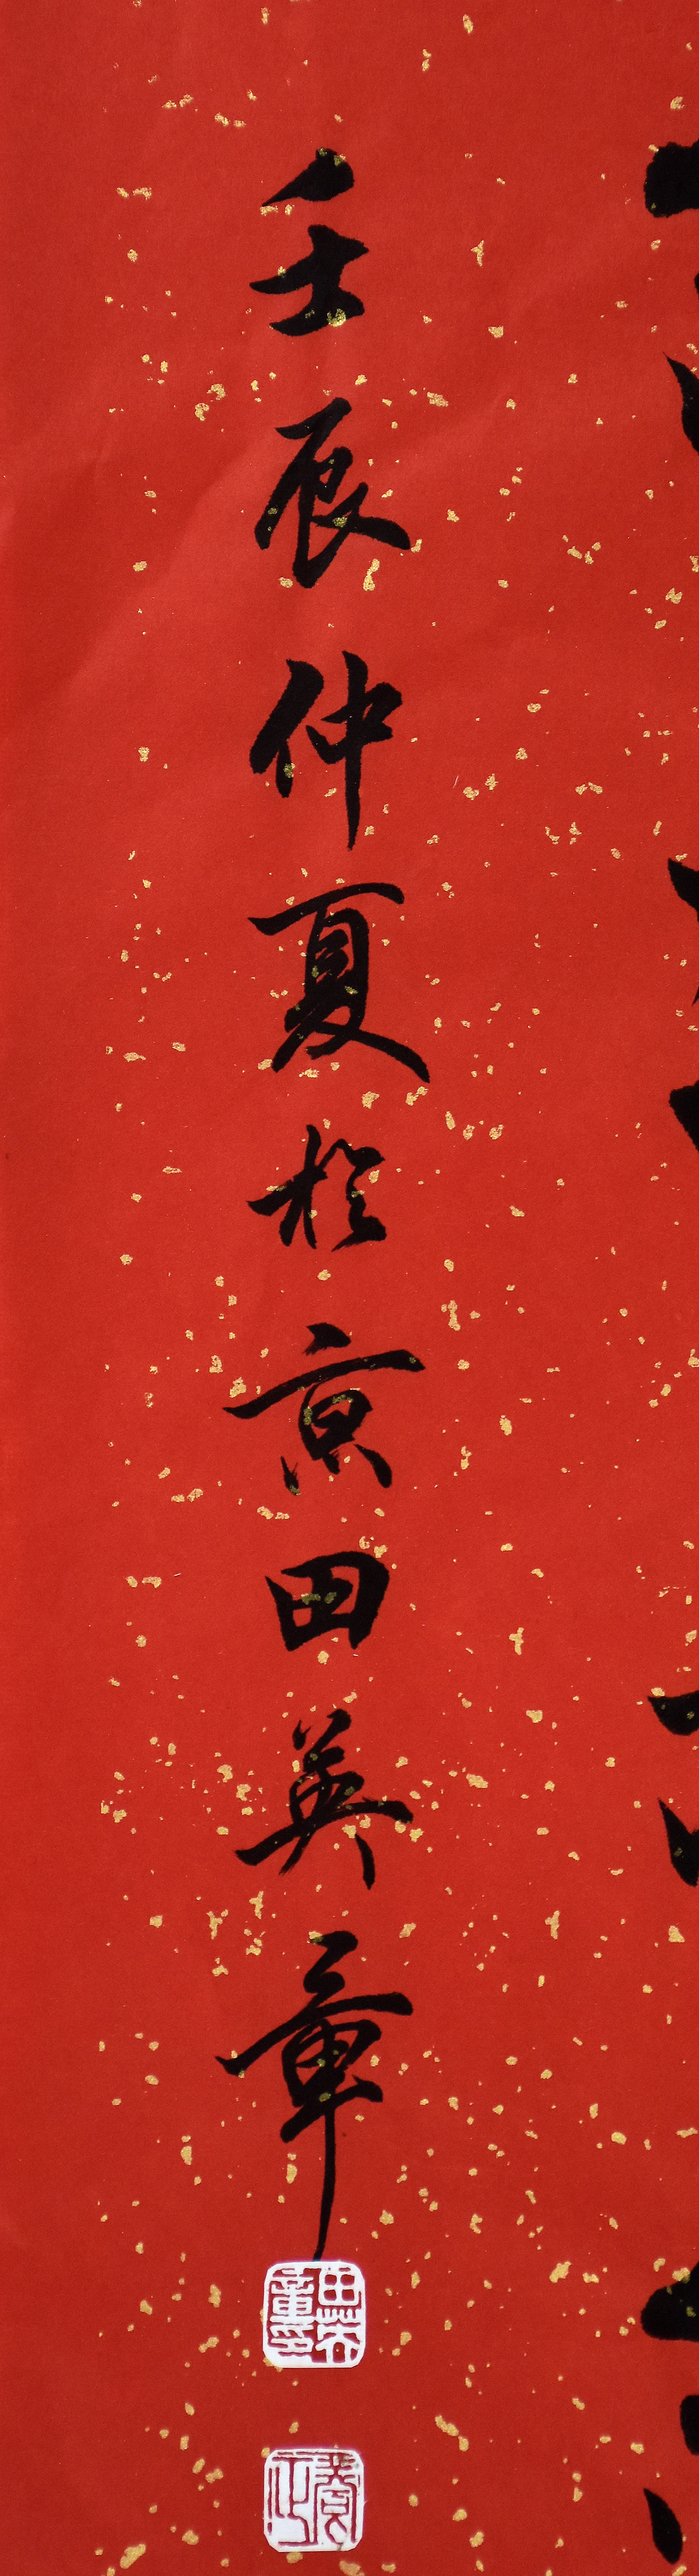 壬辰仲夏於京田英章
田英章印